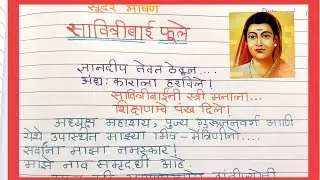 सुंदर भाषण
सावित्रीबाई फुले
ज्ञानदीप तेवत ठेवून....
अंधःकाराला हरविले।
सावित्रीबाईंनी स्त्री मनाला...
शिक्षणाचे पंख दिले।
अध्यक्ष महाशय, पुज्य गुरूजनवर्ग आणि
येथे उपस्थित माझ्या मित्र-मैत्रिणींनो....
सर्वांना माझा नमस्कार!
माझे नाव समृध्दी आहे.